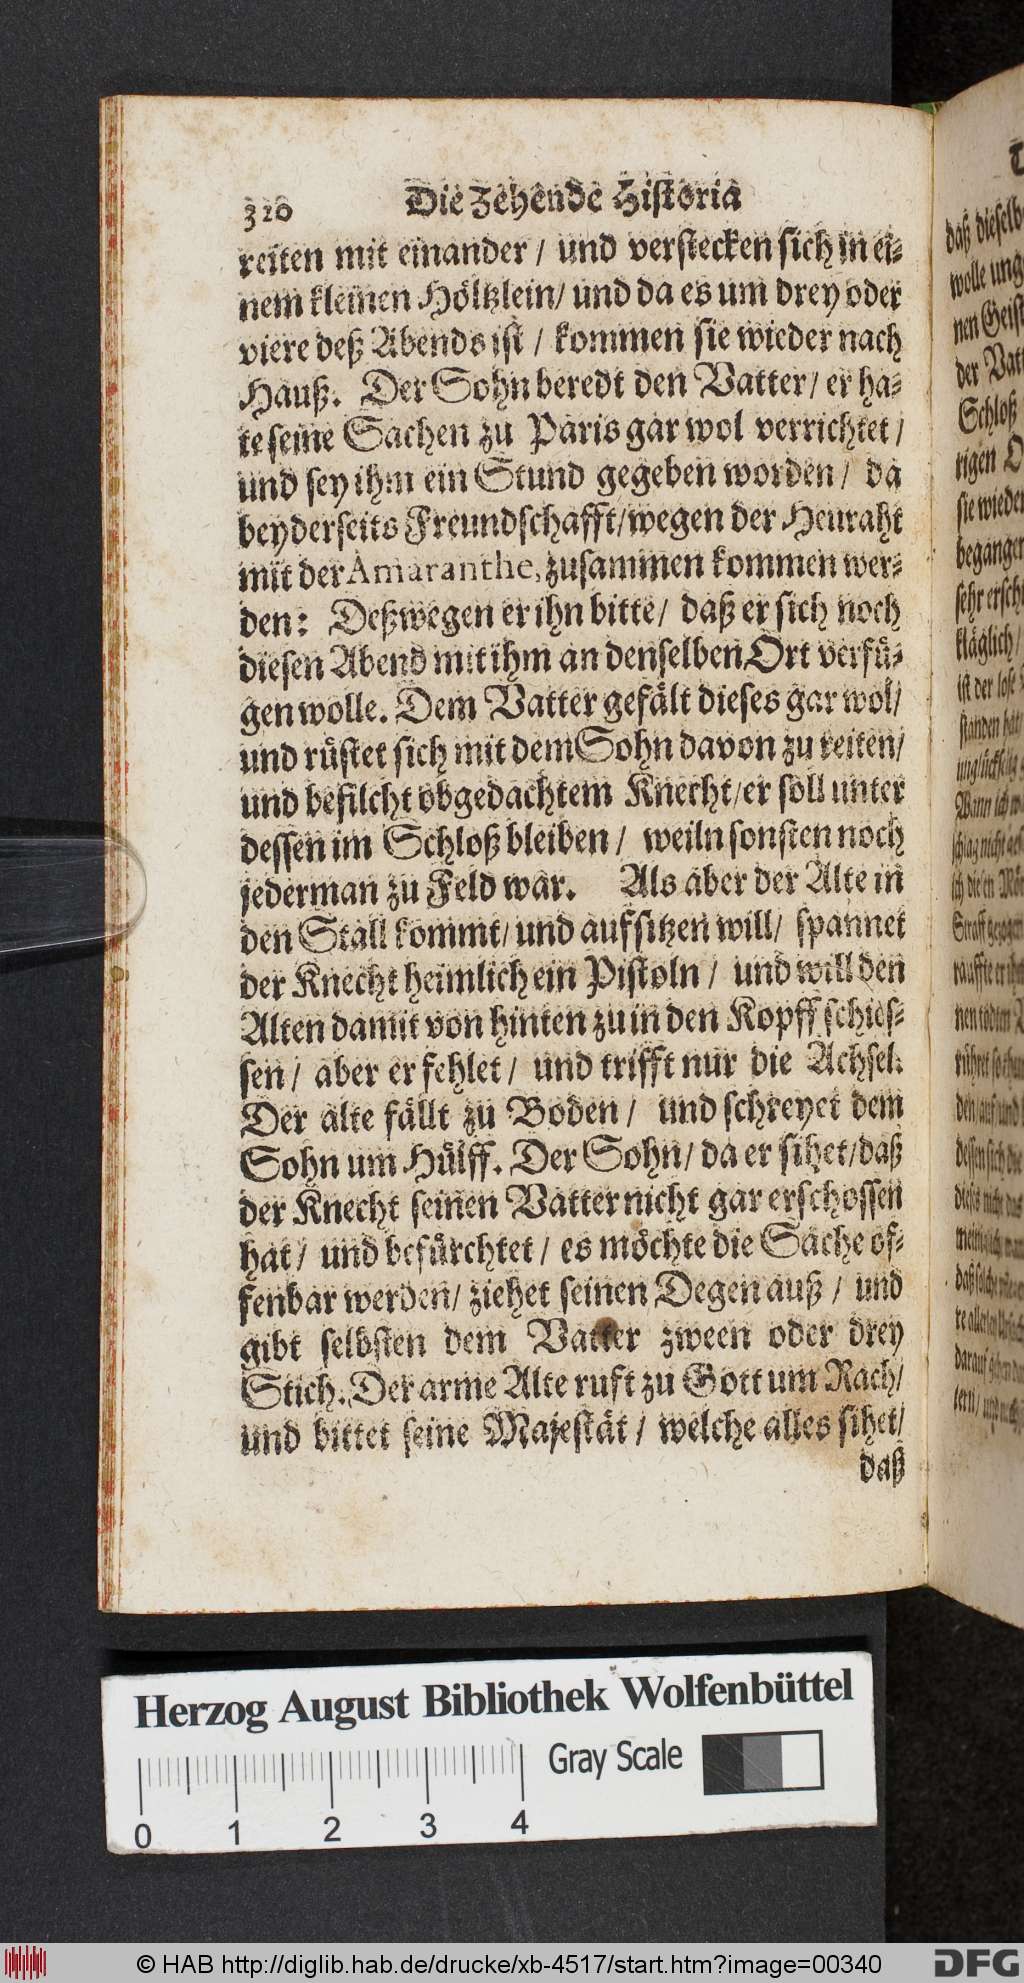 320 Die Zehende Historia
reiten mit einander / und verstecken sich in ei-
nem kleinen Höltzlein/ und da es um drey oder
viere deß Abends ist / kommen sie wieder nach
Hauß. Der Sohn beredt den Vatter/ er ha-
te seine Sachen zu Paris gar wol verrichtet /
und sey ihm ein Stund gegeben worden / da
beyderseits Freundschafft/wegen der Heuraht
mit der Amaranthe, zusammen kommen wer-
den: Deßwegen er ihn bitte/ daß er sich noch
diesen Abend mit ihm an denselben Ort verfü-
gen wolle. Dem Vatter gefält dieses gar wol/
und rüstet sich mit dem Sohn davon zu reiten/
und befilcht obgedachtem Knecht/er soll unter
dessen im Schloß bleiben / weiln sonsten noch
jederman zu Feld war. Als aber der Alte in
den Stall kommt/ und aufsitzen will/ spannet
der Knecht heimlich ein Pistoln / und will den
Alten damit von hinten zu in den Kopff schies-
sen / aber er fehlet / und trifft nur die Achsel:
Der alte fällt zu Boden / und schreyet dem
Sohn um Hülff. Der Sohn/ da er sihet/daß
der Knecht seinen Vatter nicht gar erschossen
hat / und befürchtet / es möchte die Sache of-
fenbar werden/ ziehet seinen Degen auß / und
gibt selbsten dem Vatter zween oder drey
Stich. Der arme Alte ruft zu Gott um Rach/
und bittet seine Majestät / welche alles sihet/
daß
daß
wolle
der
Schloß
rigen
sie
begangen
sehr
kläglich/
ist der lose
Herzog August Bibliothek Wolfenbüttel
Gray Scale
0 1 2 3 4
© HAB http://diglib.hab.de/drucke/xb-4517/start.htm?image=00340
DFG